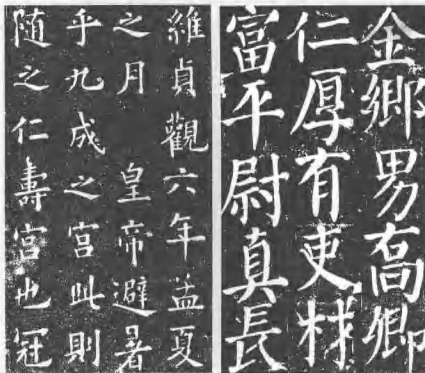 金鄉男喬卿
仁厚有吏材
富平尉真長
維貞觀六年孟夏
之月 皇帝避暑
乎九成之宮此則
随之仁壽宮也冠